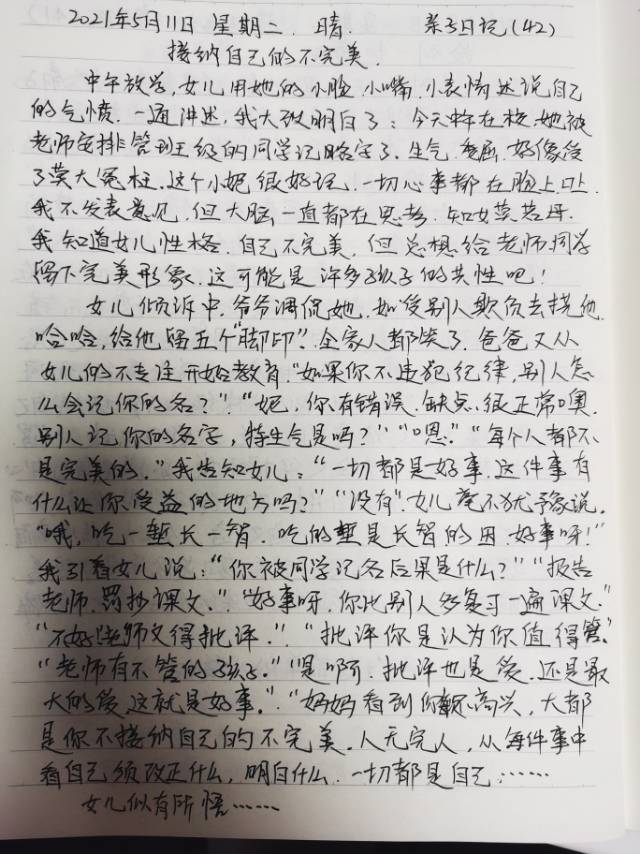 2021年5月11日 星期二 晴 亲子日记(42)
接纳自己的不完美.
中午放学,女儿用她的小脸.小嘴.小表情述说自己
的气愤.一通讲述,我大致明白了:今天中午在校,她被
老师安排管班级的同学记名字了.生气.委屈.好像受
了莫大冤枉.这个小妮很好玩.一切心事都在脸上、口上.
我不发表意见,但大脑一直都在思考.知女莫若母.
我知道女儿性格.自己不完美,但总想给老师同学
留下完美形象.这可能是许多孩子的共性吧!
女儿倾诉中.爷爷调侃她.如受别人欺负去挠他.
哈哈,给他留五个"脚印".全家人都笑了.爸爸又从
女儿的不专注开始教育."如果你不违犯纪律,别人怎
么会记你的名?""妮,你有错误.缺点.很正常噢.
别人记你的名字,特生气是吗?""嗯.""每个人都不
是完美的."我告知女儿:"一切都是好事.这件事有
什么让你受益的地方吗?""没有".女儿毫不犹豫说.
"哦,吃一堑长一智.吃的堑是长智的因.好事呀!"
我引着女儿说:"你被同学记名后果是什么?""报告
老师.罚抄课文.""好事呀.你比别人多复习一遍课文."
"不好!老师又得批评.""批评你是认为你值得管."
"老师有不管的孩子.""是啊.批评也是爱.还是最
大的爱.这就是好事.""妈妈看到你不高兴,大都
是你不接纳自己的不完美.人无完人,从每件事中
看自己须改正什么,明白什么.一切都是自己……
女儿似有所悟……